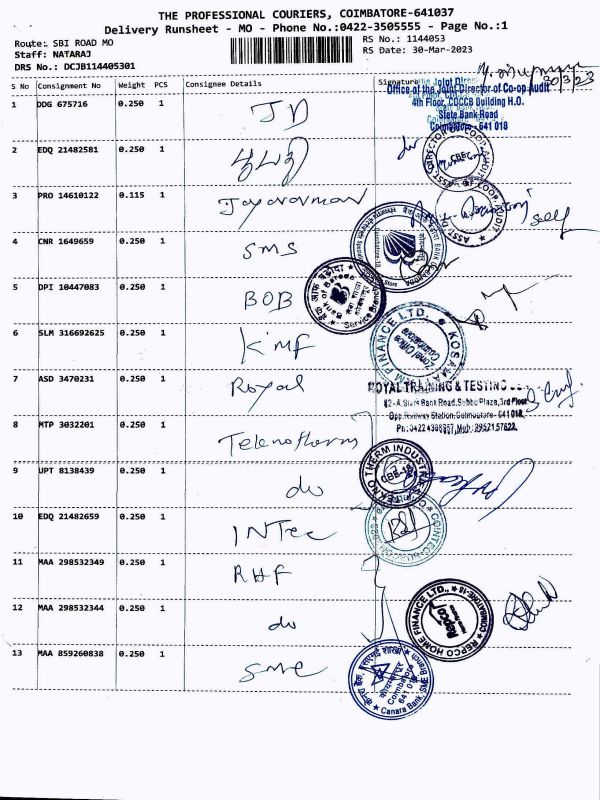 THE PROFESSIONAL COURIERS, COIMBATORE-641037
Delivery Runsheet - MO - Phone No.:0422-3505555 - Page No.:1
Route: SBI ROAD MO
RS No.: 1144053
Staff: NATARAJ
RS Date: 30-Mar-2023
DRS No.: DCJB114405301
30/3/23
S No Consignment No Weight PCS Consignee Details Signature
Office of the Joint Director of Co-op Audit
4th Floor, COCCB Building H.O.
State Bank Road
Coimbatore - 641 018
1 DDG 675716 0.250 1 JD
2 EDQ 21482581 0.250 1
3 PRO 14610122 0.115 1 Jayaraman self
4 CNR 1649659 0.250 1 SMS
5 DPI 10447083 0.250 1 BOB
6 SLM 316692625 0.250 1 KMF
7 ASD 3470231 0.250 1 Royal
ROYAL TRAINING & TESTING
82-A, State Bank Road, Subbu Plaza, 3rd Floor
Opp. Railway Station, Coimbatore - 641 018,
8 MTP 3032201 0.250 1 Teknotherm
9 UPT 8138439 0.250 1 do
10 EDQ 21482659 0.250 1 INTec
11 MAA 298532349 0.250 1 RHF
12 MAA 298532344 0.250 1 do
REPCO HOME FINANCE LTD., COIMBATORE-18
Repco
13 MAA 859260838 0.250 1 SME
Coimbatore
641 018
Canara Bank, SME Branch